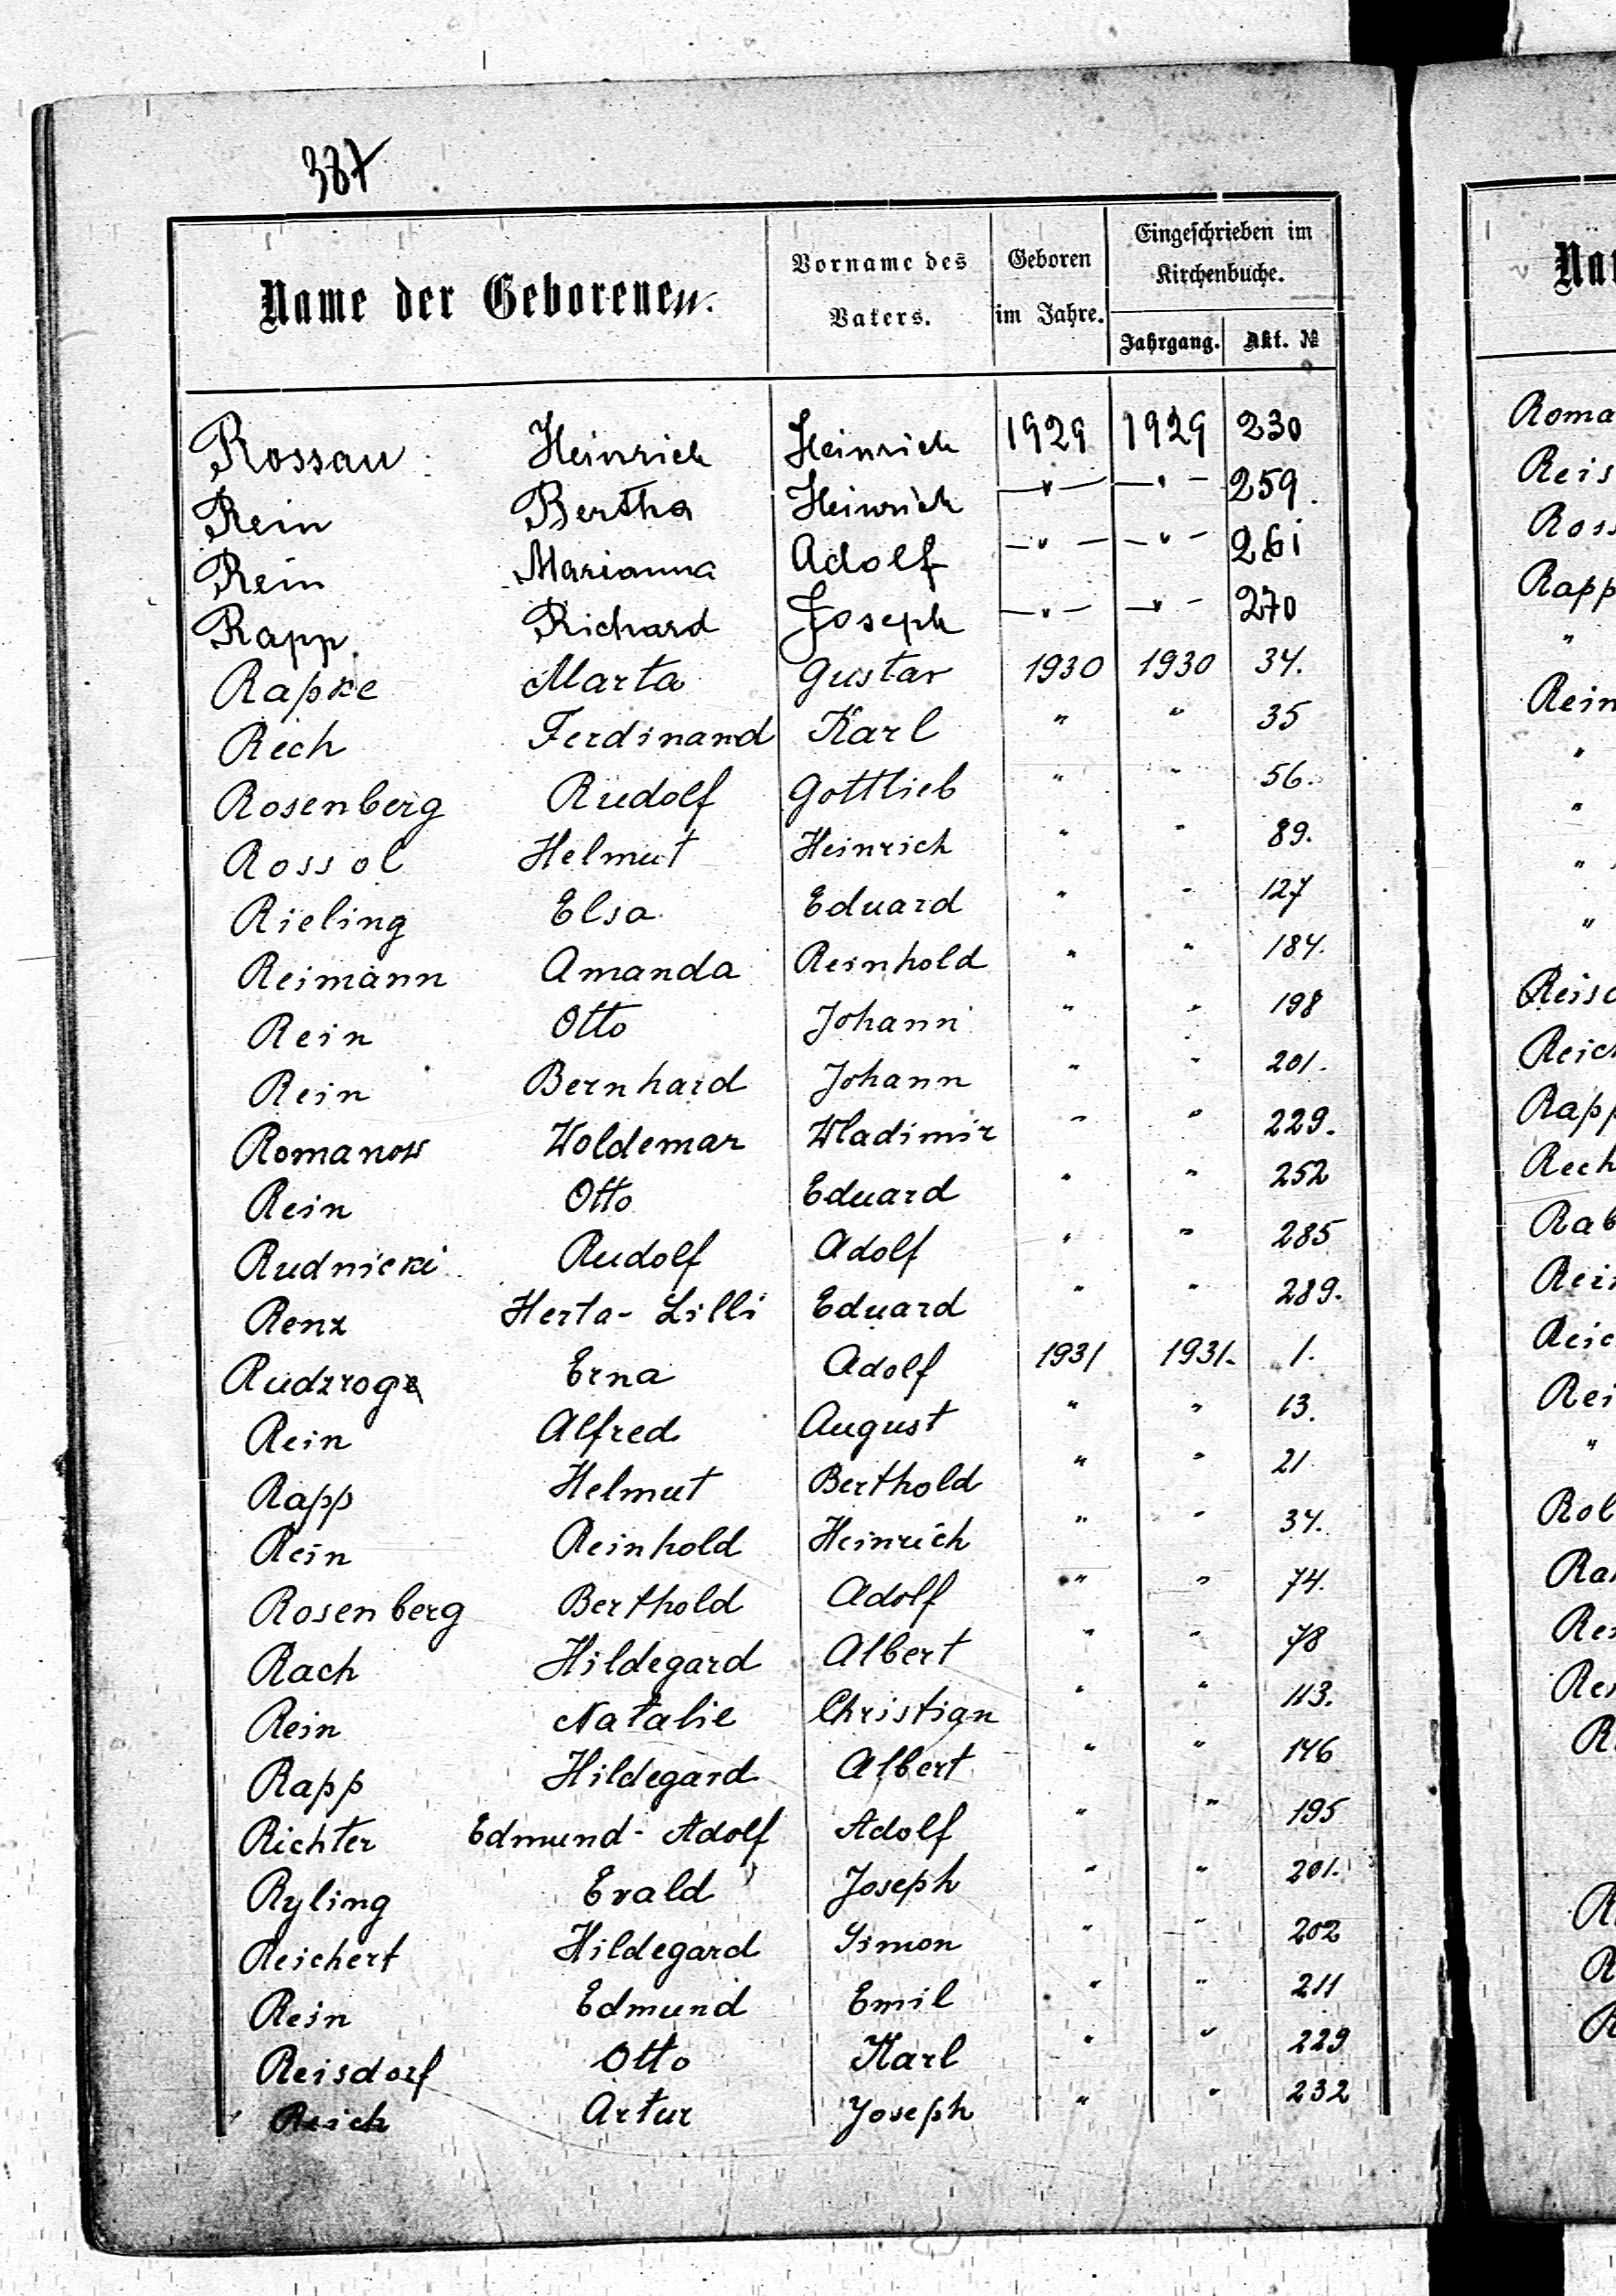 387
Name der Geborenen. Vorname des Vaters. Geboren im Jahre. Eingeschrieben im Kirchenbuche.
Jahrgang. Akt. №
Rossau Heinrich Heinrich 1929 1929 230
Rein Bertha Heinrich —"— —"— 259.
Rein Marianna Adolf —"— —"— 261
Rapp. Richard Joseph —"— —"— 270
Rapke Marta Gustav 1930 1930 34.
Rech Ferdinand Karl " " 35
Rosenberg Rudolf Gottlieb " " 56.
Rossol Helmut Heinrich " " 89.
Rieling Elsa Eduard " " 127
Reimann Amanda Reinhold " " 184.
Rein Otto Johann " " 198
Rein Bernhard Johann " " 201.
Romanow Woldemar Wladimir " " 229.
Rein Otto Eduard " " 252
Rudnicki Rudolf Adolf " " 285
Renz Herta-Lilli Eduard " " 289.
Erna Adolf 1931 1931. 1.
Rein Alfred August " " 13.
Rapp Helmut Berthold " " 21
Rein Reinhold Heinrich " " 34.
Rosenberg Berthold Adolf " " 74.
Rach Hildegard Albert " " 78
Rein Natalie Christian " " 113.
Rapp Hildegard Albert " " 146
Richter Edmund-Adolf Adolf " " 195
Ryling Evald Joseph " " 201.
Reichert Hildegard Simon " " 202
Rein Edmund Emil " " 211
Reisdorf Otto Karl " " 229
Reich Artur Joseph " " 232
Roma
Reis
Ross
Rapp
"
Rein
"
"
"
"
Reisc
Reich
Rapp
Rech
Rab
Rein
Reic
Rei
"
Rol